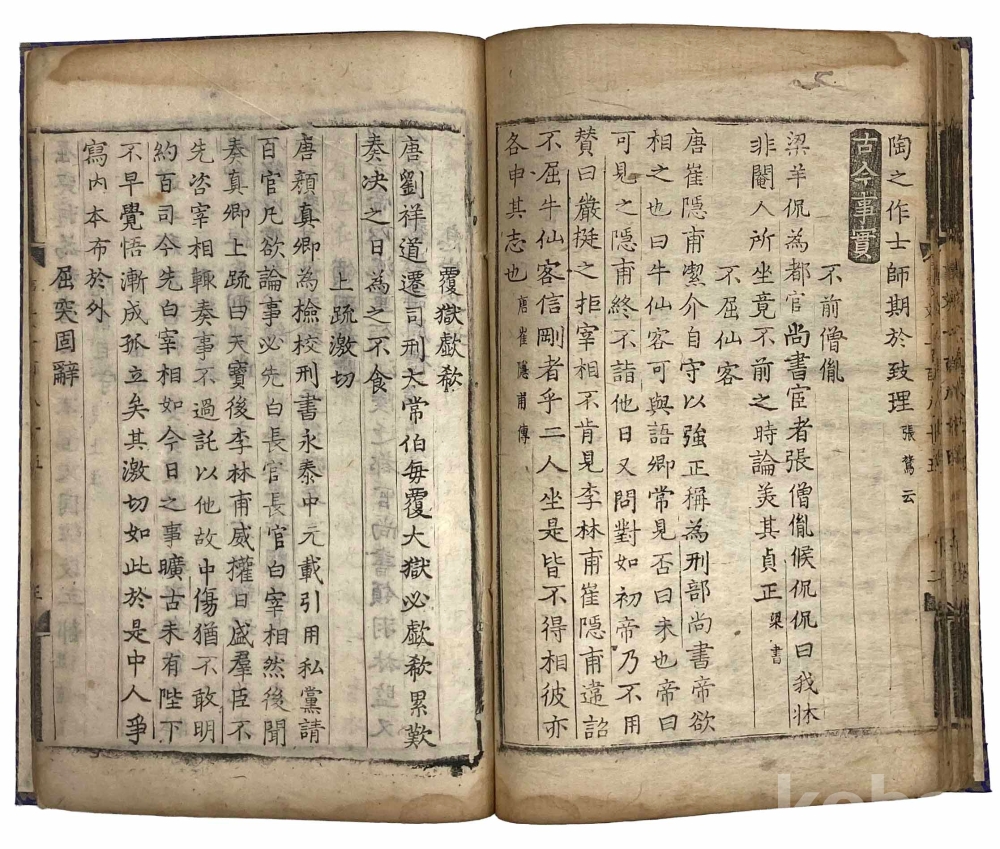 陶之作士師期於致理張鷟云
古今事實
不前僧胤
梁羊侃為都官尚書宦者張僧胤候侃侃曰我牀
非閹人所坐竟不前之時論美其貞正梁書
不屈仙客
唐崔隱甫潔介自守以強正稱為刑部尚書帝欲
相之也曰牛仙客可與語卿常見否曰未也帝曰
可見之隱甫終不詣他日又問對如初帝乃不用
賛曰嚴挺之拒宰相不肯見李林甫崔隱甫違詔
不屈牛仙客信剛者乎二人坐是皆不得相彼亦
各申其志也唐崔隱甫傳
覆獄歔欷
唐劉祥道遷司刑太常伯每覆大獄必歔欷累歎
奏决之日為之不食
上疏激切
唐顏真卿為檢校刑書永泰中元載引用私黨請
百官凡欲論事必先白長官長官白宰相然後聞
奏真卿上疏曰天寶後李林甫威權日盛羣臣不
先咨宰相輙奏事不過託以他故中傷猶不敢明
約百司令先白宰相如今日之事曠古未有陛下
不早覺悟漸成孤立矣其激切如此於是中人爭
寫內本布於外
屈突固辭